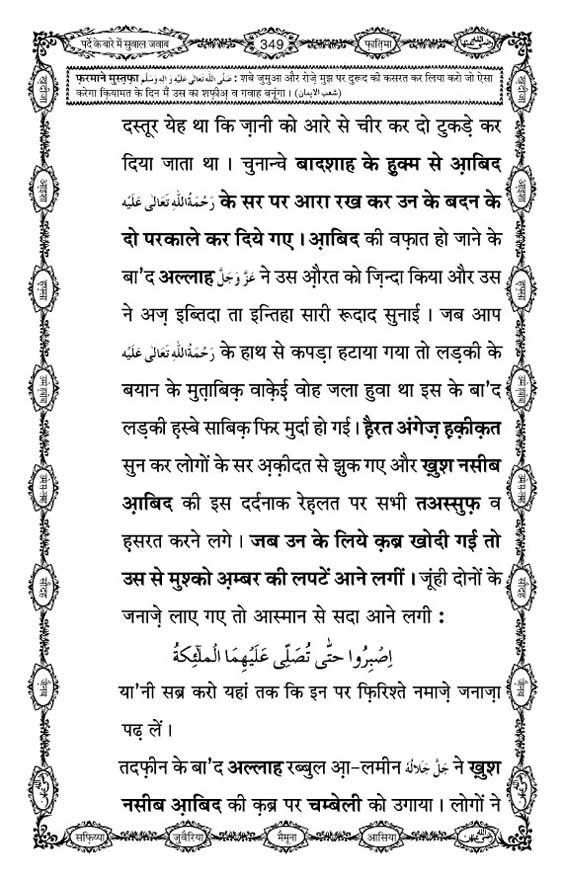 पर्दे के बारे में सुवाल जवाब 349 फ़ातिमा
फ़रमाने मुस्तफ़ा صَلَّى اللهُ تَعَالٰى عَلَيْهِ وَاٰلِهٖ وَسَلَّم : शबे जुमुआ और रोज़े मुझ पर दुरूद की कसरत कर लिया करो जो ऐसा
करेगा क़ियामत के दिन मैं उस का शफ़ीअ़ व गवाह बनूंगा। (شعب الایمان)
दस्तूर येह था कि ज़ानी को आरे से चीर कर दो टुकड़े कर
दिया जाता था । चुनान्चे बादशाह के हुक्म से आ़बिद
رَحْمَةُ اللهِ تَعَالٰى عَلَيْه के सर पर आरा रख कर उन के बदन के
दो परकाले कर दिये गए । आ़बिद की वफ़ात हो जाने के
बा'द अल्लाह عَزَّ وَجَلَّ ने उस औ़रत को ज़िन्दा किया और उस
ने अज़ इब्तिदा ता इन्तिहा सारी रूदाद सुनाई । जब आप
رَحْمَةُ اللهِ تَعَالٰى عَلَيْه के हाथ से कपड़ा हटाया गया तो लड़की के
बयान के मुत़ाबिक़ वाके़ई वोह जला हुवा था इस के बा'द
लड़की ह़स्बे साबिक़ फिर मुर्दा हो गई । ह़ैरत अंगेज़ ह़क़ीक़त
सुन कर लोगों के सर अ़क़ीदत से झुक गए और ख़ुश नसीब
आ़बिद की इस दर्दनाक रेह़लत पर सभी तअस्सुफ़ व
ह़सरत करने लगे । जब उन के लिये क़ब्र खोदी गई तो
उस से मुश्को अ़म्बर की लपटें आने लगीं । जूंही दोनों के
जनाज़े लाए गए तो आस्मान से सदा आने लगी :
اِصْبِرُوا حَتّٰى تُصَلِّىَ عَلَيْهِمَا الْمَلٰٓئِكَةُ
या'नी सब्र करो यहां तक कि इन पर फ़िरिश्ते नमाज़े जनाज़ा
पढ़ लें ।
तदफ़ीन के बा'द अल्लाह रब्बुल आ़-लमीन جَلَّ جَلَالُهٗ ने ख़ुश
नसीब आ़बिद की क़ब्र पर चम्बेली को उगाया । लोगों ने
सफ़िय्या जुवैरिया मैमूना आसिया